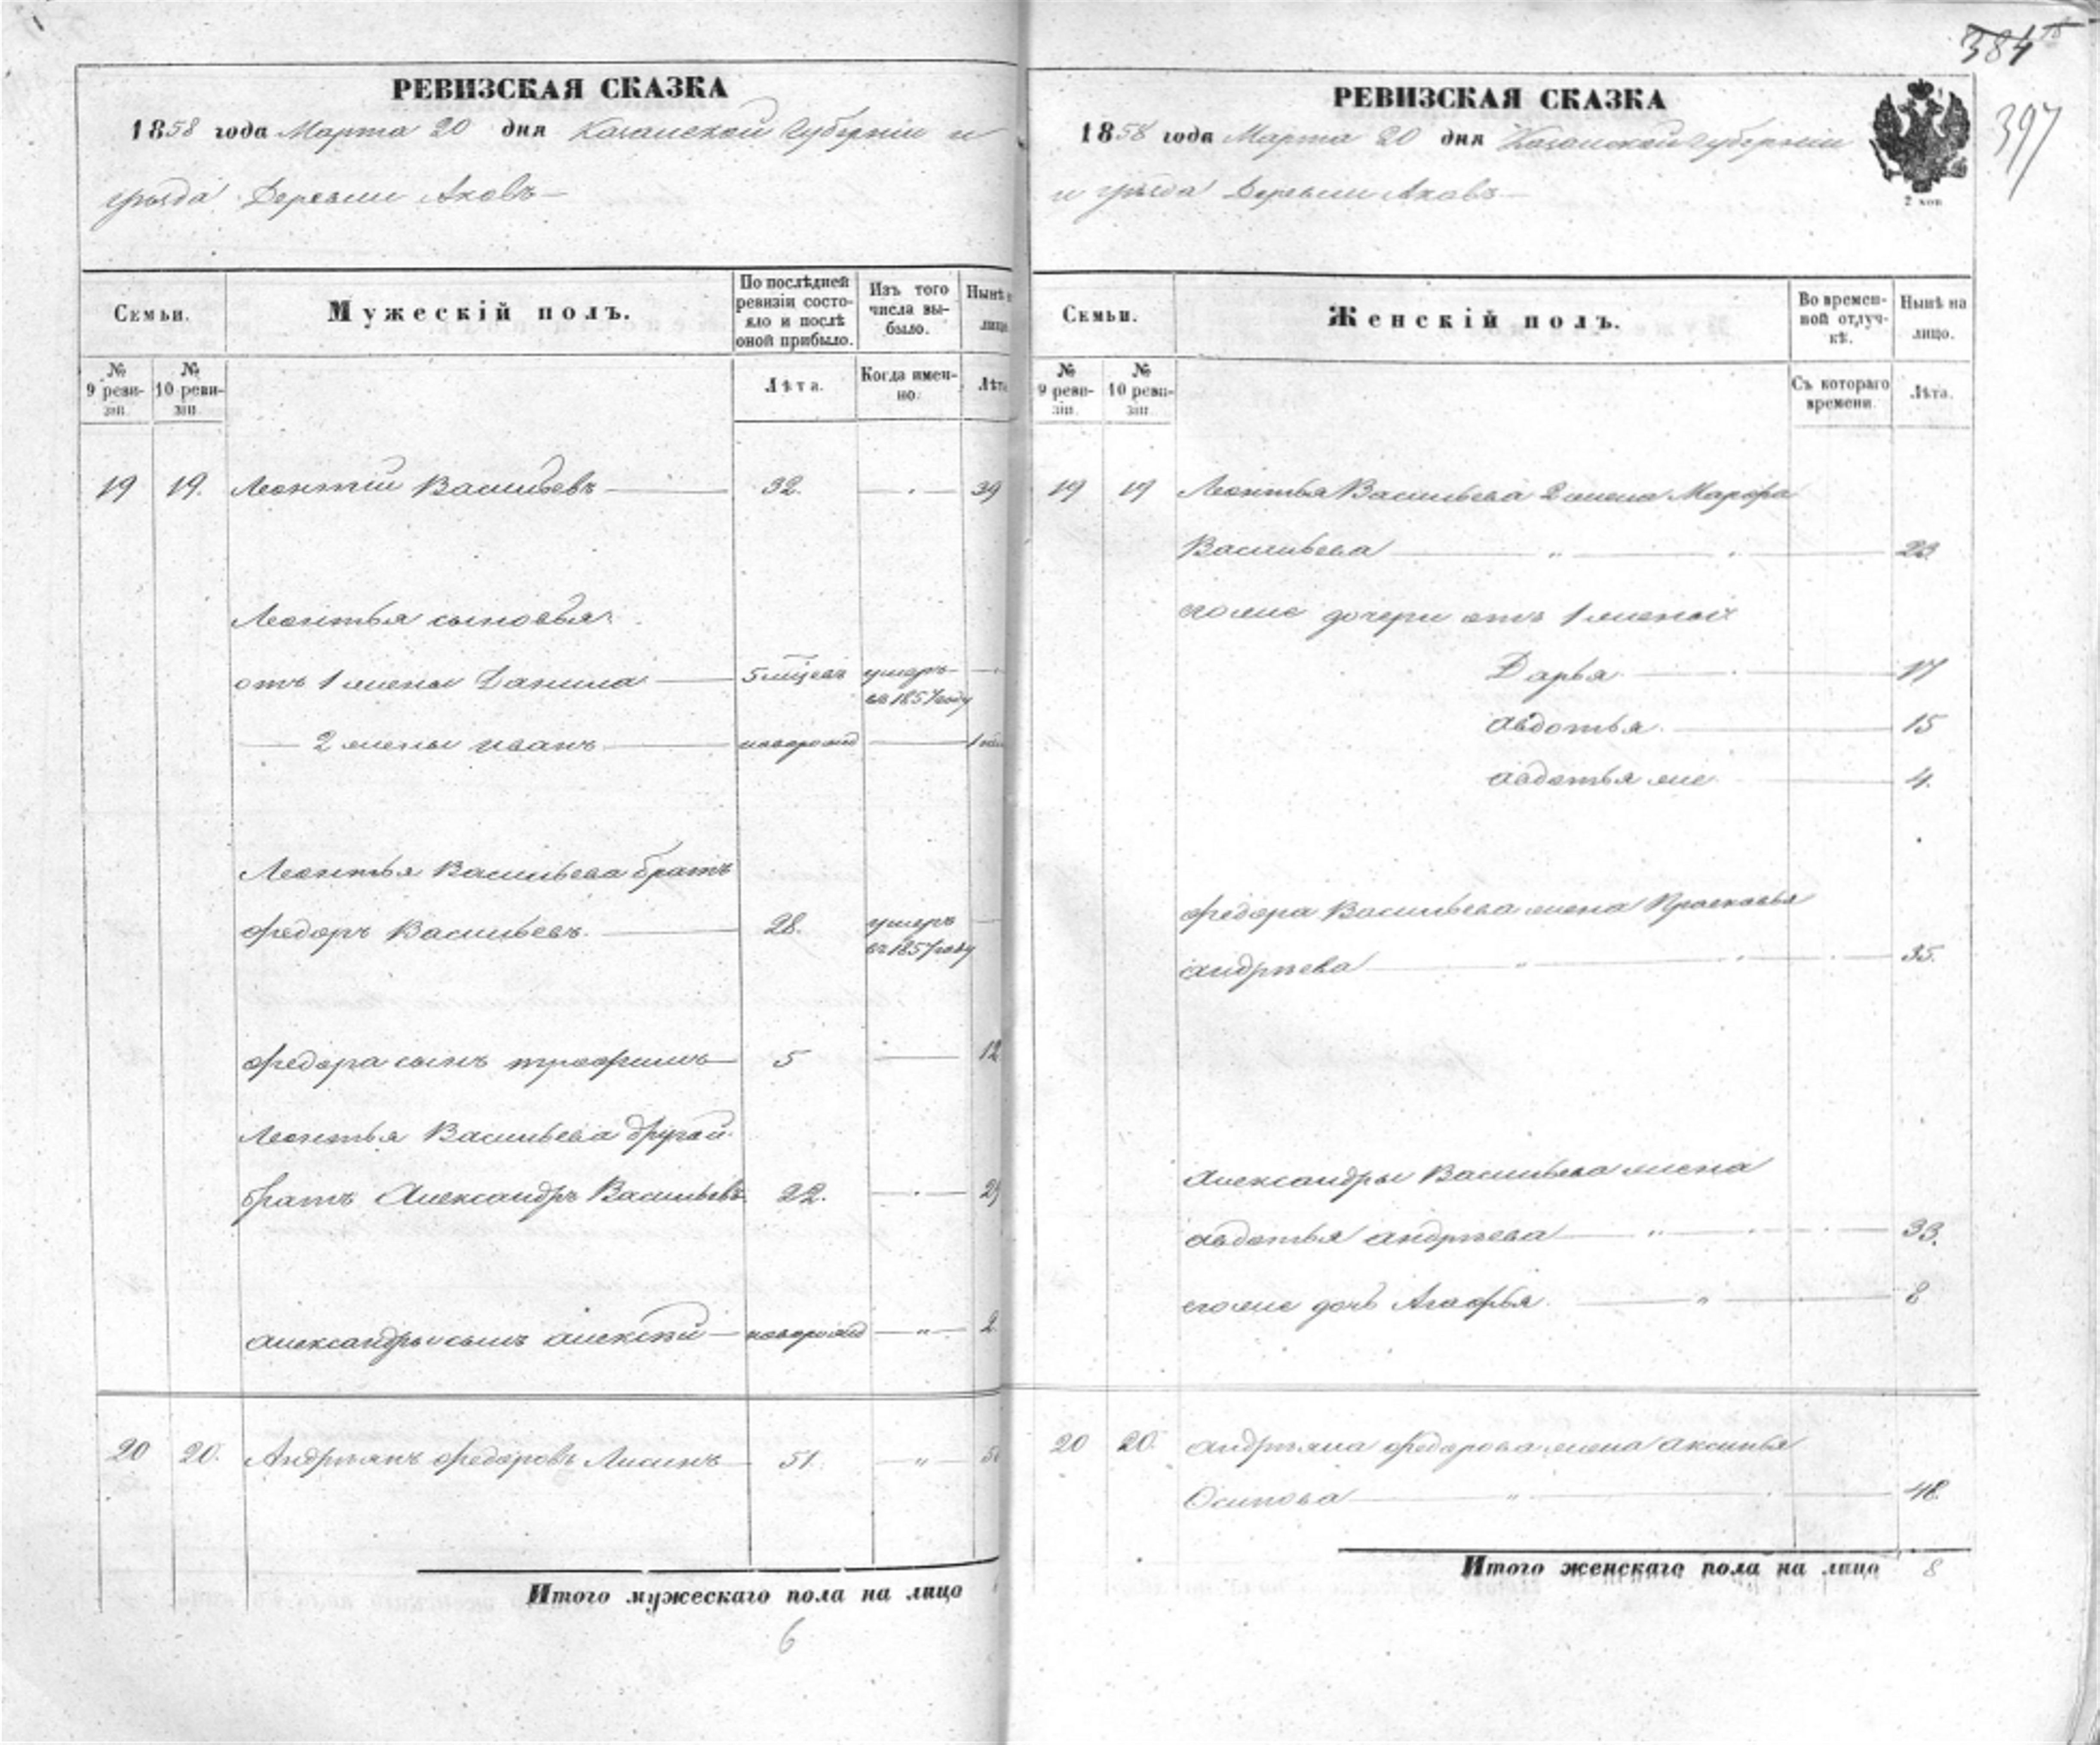 384
397
РЕВИЗСКАЯ СКАЗКА
1858 года Марта 20 дня Казанской губернiи и
уѣзда Деревни Аковъ
Семьи.
Мужескiй полъ.
По послѣдней ревизiи состояло и послѣ оной прибыло.
Изъ того числа выбыло.
Нынѣ
лицо
№ 9 ревизiи.
№ 10 ревизiи.
Лѣта.
Когда именно.
Лѣта
19 19. Леонтiй Васильевъ 32. 39
Леонтья сыновья
отъ 1 жены Данила 5 мцевъ умеръ
въ 1857 году
2 жены иванъ новорожд 1
Леонтья Васильева братъ
федоръ Васильевъ 28. умеръ
въ 1857 году
федора сынъ трофимъ 5 12
Леонтья Васильева другой
братъ Александръ Васильевъ 22. 29
александры сынъ алексѣй новорожд " 2
20 20. Андреянъ федоровъ Лисинъ 51. "
Итого мужескаго пола на лицо
6
РЕВИЗСКАЯ СКАЗКА
1858 года Марта 20 дня Казанской губернiи
и уѣзда Деревни Аковъ
2 коп
Семьи.
Женскiй полъ.
Во временной отлучкѣ.
Нынѣ на лицо.
№ 9 ревизiи.
№ 10 ревизiи.
Съ котораго времени.
Лѣта.
19 19 Леонтья Васильева 2 жена Марфа
Васильева " 23.
его же дочери отъ 1 жены
Дарья 17
авдотья 15
авдотья же 4.
федора Васильева жена Прасковья
андреева " 35.
александры Васильева жена
авдотья андреева " 33.
его же дочь Агафья " 8
20 20. андреяна федорова жена аксинья
Осипова " 48.
Итого женскаго пола на лицо 8